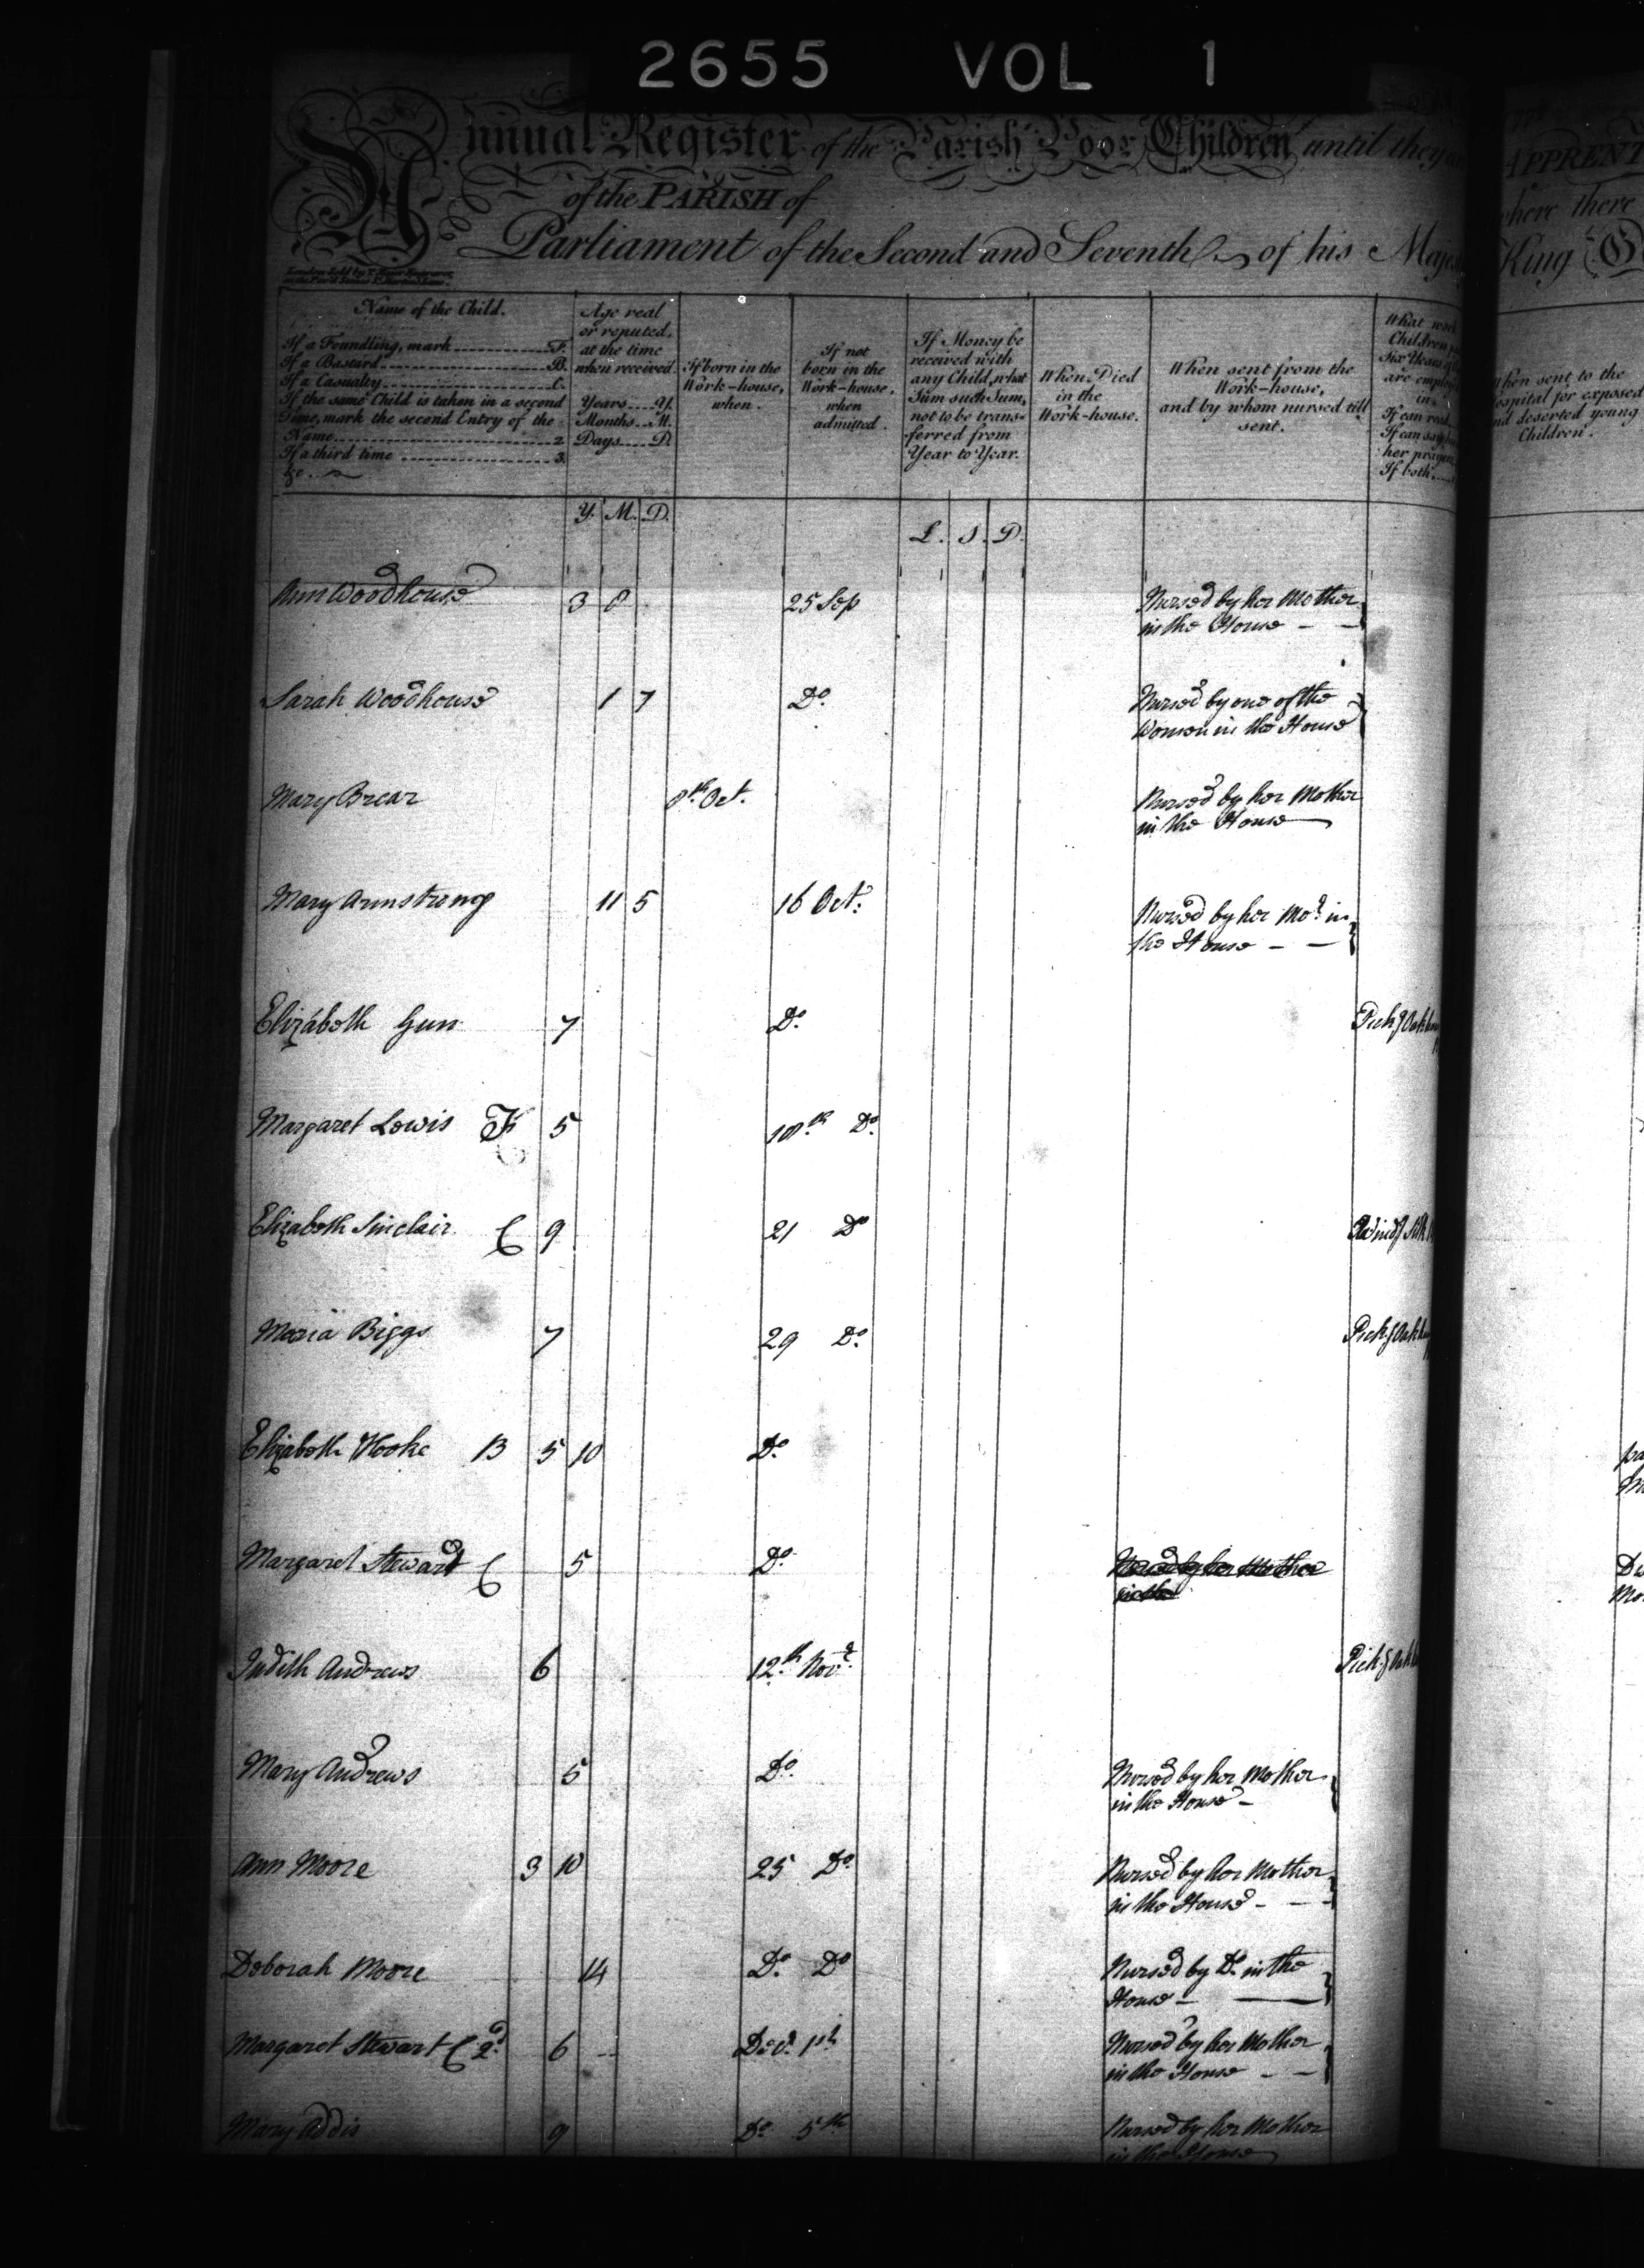 2655 VOL 1
Annual Register of the Parish Poor Children until they ar
of the PARISH of
Parliament of the Second and Seventh of his Majes
APPRENT
where there
King G
Name of the Child.
If a Foundling, mark F.
If a Bastard B.
If a Casualty C.
If the same Child is taken in a second
Time, mark the second Entry of the
Name 2
If a third time 3.
&c.
Age real
or reputed,
at the time
when received.
Years Y.
Months M.
Days D.
If born in the
Work-house,
when.
If not
born in the
Work-house,
when
admitted.
If Money be
received with
any Child, what
Sum such Sum,
not to be trans-
ferred from
Year to Year.
When Died
in the
Work-house.
When sent from the
Work-house,
and by whom nursed till
sent.
What
Children
Six Years
are employ
in
If can read
If can say
her prayers
If both
When sent to the
Hospital for exposed
and deserted young
Children.
Y. M. D. L. S. D.
Ann Woodhouse 3 8 25 Sep Nursed by her Mother
in the House
Sarah Woodhouse 1 7 Do. Nursed by one of the
Women in the House
Mary Brear 8th Oct. Nursed by her Mother
in the House
Mary Armstrong 11 5 16 Oct. Nursed by her Mor. in
the House
Elizabeth Gun 7 Do. Pickg Oakum
Margaret Lewis F 5 18th Do.
Elizabeth Sinclair C 9 21 Do Windg Silk
Maria Biggs 7 29 Do. Pickg Oakum
Elizabeth Hooke B 5 10 Do.
Margaret Steward C 5 Do. Nursed by her Mother
in the
Judith Andrews 6 12th Novr. Pickg Oak
Mary Andrews 5 Do. Nursed by her Mother
in the House
Ann Moore 3 10 25 Do. Nursed by her Mother
in the House
Deborah Moore 14 Do. Do Nursed by Do. in the
House
Margaret Stewart C 2d 6 Decr. 1st Nursed by her Mother
in the House
Mary Addis 9 Do. 5th Nursed by her Mother
in the House